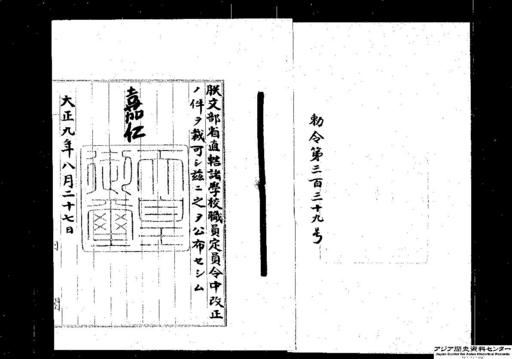 勅令第三百三十九号
朕文部省直轄諸学校職員定員令中改正
ノ件ヲ裁可シ茲ニ之ヲ公布セシム
嘉仁
天皇御璽
大正九年八月二十七日
アジア歴史資料センター
Japan Center for Asian Historical Records